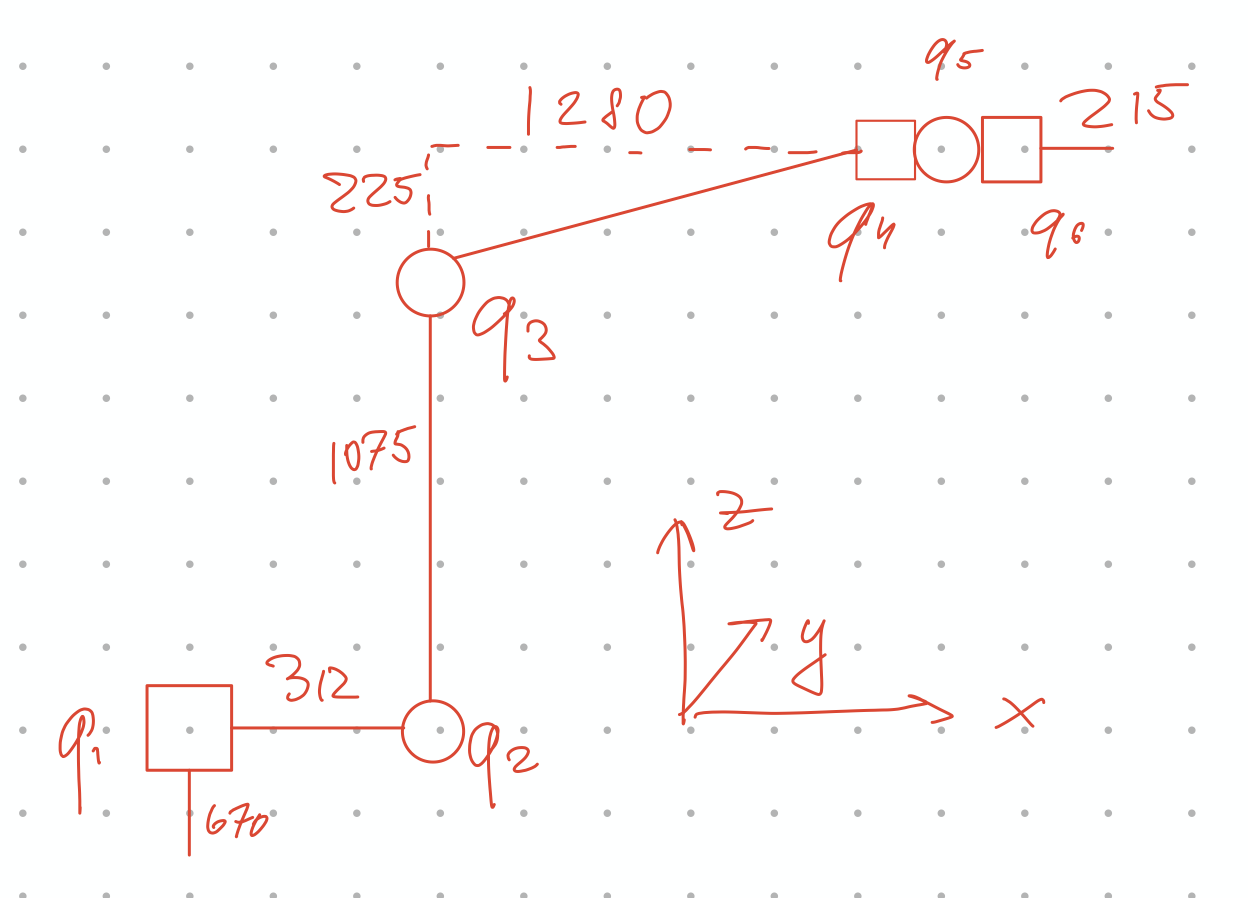 q5
1280
215
225
q4
q6
q3
1075
z
312
y
q1
q2
x
670